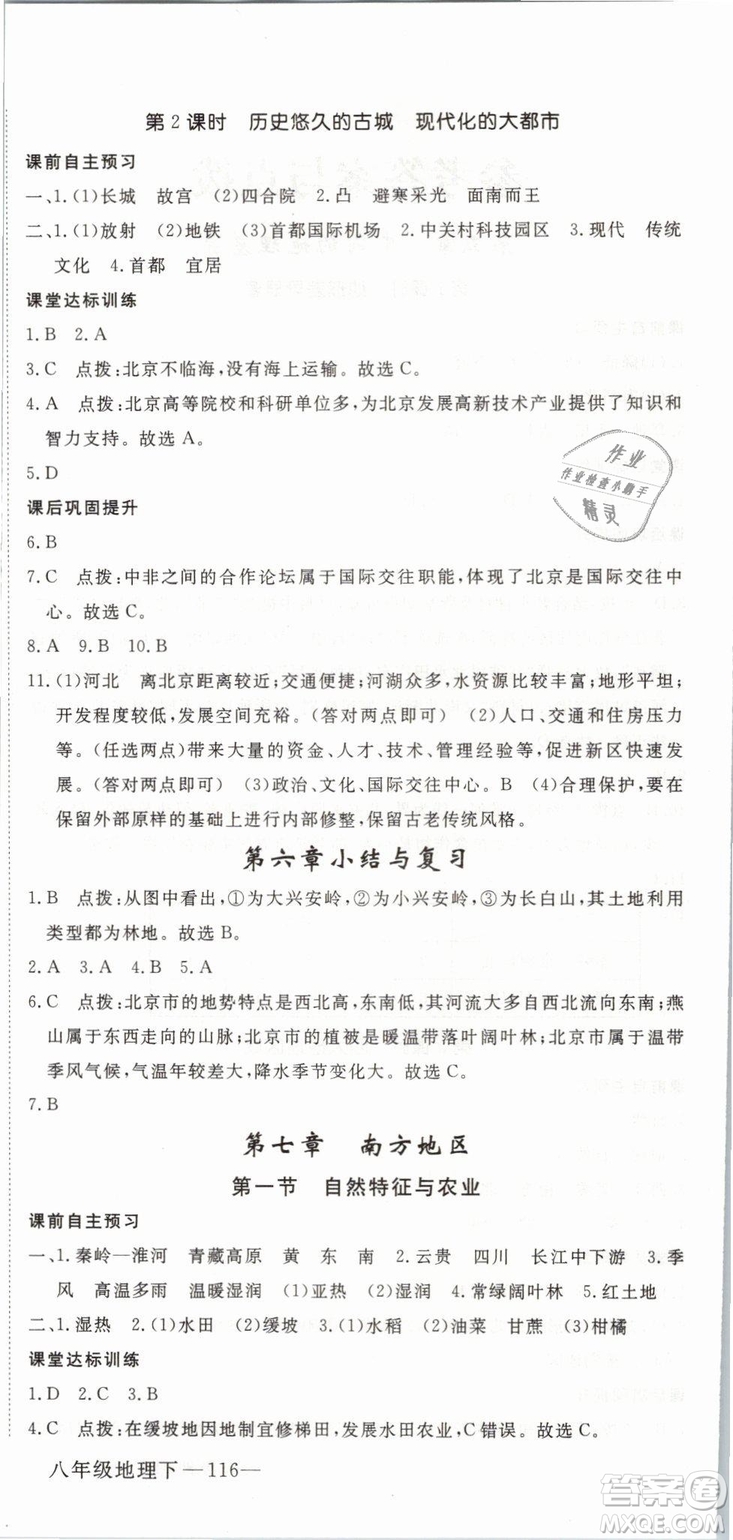 第2课时　历史悠久的古城　现代化的大都市
课前自主预习
一、1.(1)长城　故宫　(2)四合院　2.凸　避寒采光　面南而王
二、1.(1)放射　(2)地铁　(3)首都国际机场　2.中关村科技园区　3.现代　传统
文化　4.首都　宜居
课堂达标训练
1.B　2.A
3.C　点拨:北京不临海,没有海上运输。故选C。
4.A　点拨:北京高等院校和科研单位多,为北京发展高新技术产业提供了知识和
智力支持。故选A。
5.D
课后巩固提升
6.B
7.C　点拨:中非之间的合作论坛属于国际交往职能,体现了北京是国际交往中
心。故选C。
8.A　9.B　10.B
11.(1)河北　离北京距离较近;交通便捷;河湖众多,水资源比较丰富;地形平坦;
开发程度较低,发展空间充裕。(答对两点即可)　(2)人口、交通和住房压力
等。(任选两点)带来大量的资金、人才、技术、管理经验等,促进新区快速发
展。(答对两点即可)　(3)政治、文化、国际交往中心。B　(4)合理保护,要在
保留外部原样的基础上进行内部修整,保留古老传统风格。
第六章小结与复习
1.B　点拨:从图中看出,①为大兴安岭,②为小兴安岭,③为长白山,其土地利用
类型都为林地。故选B。
2.A　3.A　4.B　5.A
6.C　点拨:北京市的地势特点是西北高,东南低,其河流大多自西北流向东南;燕
山属于东西走向的山脉;北京市的植被是暖温带落叶阔叶林;北京市属于温带
季风气候,气温年较差大,降水季节变化大。故选C。
7.B
第七章　南方地区
第一节　自然特征与农业
课前自主预习
一、1.秦岭—淮河　青藏高原　黄　东　南　2.云贵　四川　长江中下游　3.季
风　高温多雨　温暖湿润　(1)亚热　(2)湿润　4.常绿阔叶林　5.红土地
二、1.湿热　(1)水田　(2)缓坡　2.(1)水稻　(2)油菜　甘蔗　(3)柑橘
课堂达标训练
1.D　2.C　3.B
4.C　点拨:在缓坡地因地制宜修梯田,发展水田农业,C错误。故选C。
八年级地理下—116—
作业
作业检查小帮手
精灵
答案圈
MXQE.COM